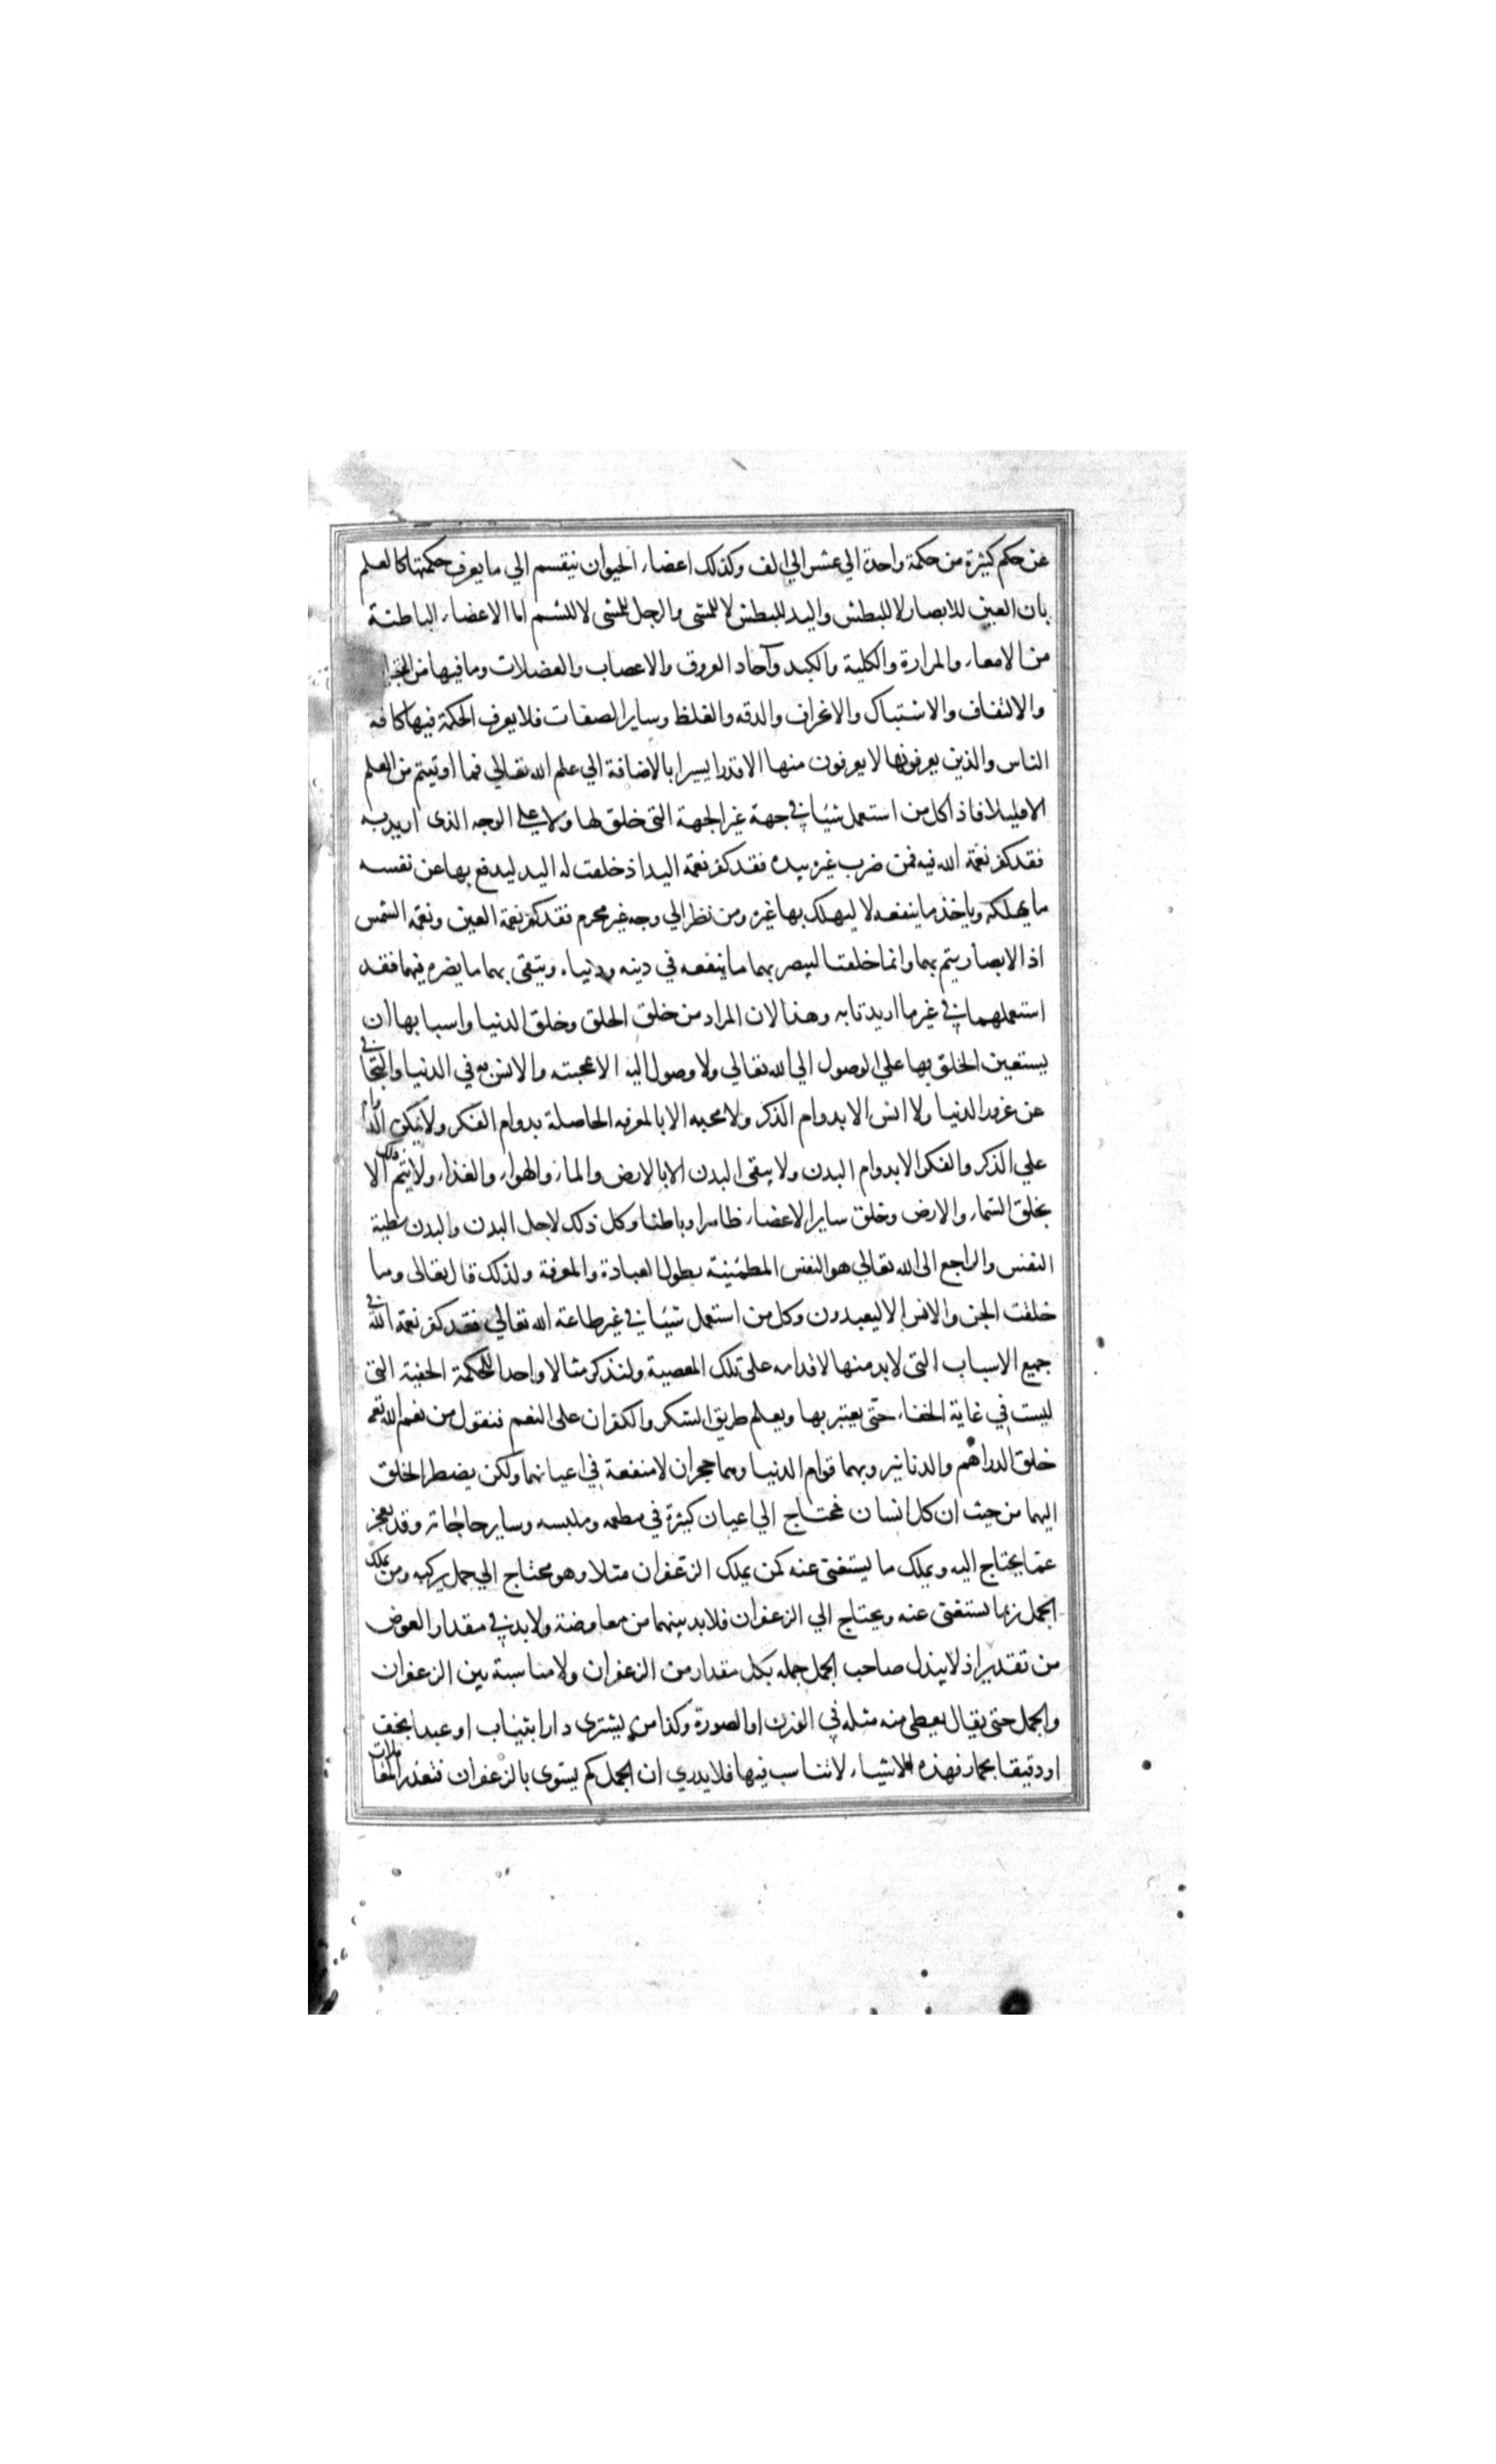 عن حكم كثيرة من حكمة واحدة الي عشر الي الف وكذلك اعضاء الحيوان ينقسم الي ما يعرف حكمتها كالعلم
بان العين للابصار لا للبطش واليد للبطش لا للمشى والرجل للمشى لا للشم اما الاعضاء الباطنة
من الامعاء والمرارة والكلية والكبد وآحاد العروق والاعصاب والعضلات وما فيها من
والالتفاف والاشتباك والانحراف والدقه والغلظ وساير الصفات فلا يعرف الحكمة فيها كافه
الناس والذين يعرفونها لا يعرفون منها الا قدرا يسيرا بالاضافة الي علم الله تعالي فما اوتيتم من العلم
الا قليلا فاذا كل من استعمل شيئا في جهة غير الجهة التى خلق لها ولا علي الوجه الذى اريد به
فقد كفر نعمة الله فيه فمن ضرب غيره بيده فقد كفر نعمة اليد اذ خلقت له اليد ليدفع بها عن نفسه
ما يهلكه وياخذ ما ينفعه لا ليهلك بها غيره ومن نظر الي وجه غير محرم فقد كفر نعمة العين ونعمة الشمس
اذ الابصار يتم بهما وانما خلقتا ليبصر بهما ما ينفعه في دينه ودنياه ويتقى بهما ما يضره فيهما فقد
استعملهما في غير ما اريدتا به وهذا لان المراد من خلق الخلق وخلق الدنيا واسبابها ان
يستعين الخلق بها علي الوصول الي الله تعالي ولا وصول اليه الا بمحبته والانس به في الدنيا والتجافي
عن غرور الدنيا ولا انس الا بدوام الذكر ولا محبه الا بالمعرفه الحاصلة بدوام الفكر ولا يمكن الدوام
علي الذكر والفكر الا بدوام البدن ولا يبقى البدن الا بالارض والماء والهواء والغذاء ولا يتم ذلك الا
بخلق السماء والارض وخلق ساير الاعضاء ظاهرا وباطنا وكل ذلك لاجل البدن والبدن مطية
النفس والراجع الى الله تعالي هو النفس المطمئنة بطول العبادة والمعرفة ولذلك قال تعالى وما
خلقت الجن والانس الا ليعبدون وكل من استعمل شيئا في غير طاعة الله تعالي فقد كفر نعمة الله في
جميع الاسباب التى لا بد منها لاقدامه على تلك المعصية ولنذكر مثالا واحدا للحكمة الخفية التى
ليست في غاية الخفاء حتى يعتبر بها ويعلم طريق الشكر والكفران على النعم فنقول من نعم الله تعه
خلق الدراهم والدنانير وبهما قوام الدنيا وهما حجران لا منفعة في اعيانهما ولكن يضطر الخلق
اليهما من حيث ان كل انسان محتاج الي اعيان كثيرة في مطعمه وملبسه وساير حاجاته وقد يعجز
عما يحتاج اليه ويملك ما يستغنى عنه كمن يملك الزعفران مثلا وهو محتاج الي جمل يركبه ومن يملك
الجمل ربما يستغنى عنه ويحتاج الي الزعفران فلا بد بينهما من معاوضة ولا بد في مقدار العوض
من تقدير اذ لا يبذل صاحب الجمل جمله بكل مقدار من الزعفران ولا مناسبة بين الزعفران
والجمل حتى يقال يعطى منه مثله في الوزن او الصورة وكذا من يشترى دارا بثياب او عبدا بخف
او دقيقا بحمار فهذه الاشياء لا تناسب فيها فلا يدري ان الجمل كم يستوى بالزعفران فتعذر المعاملات